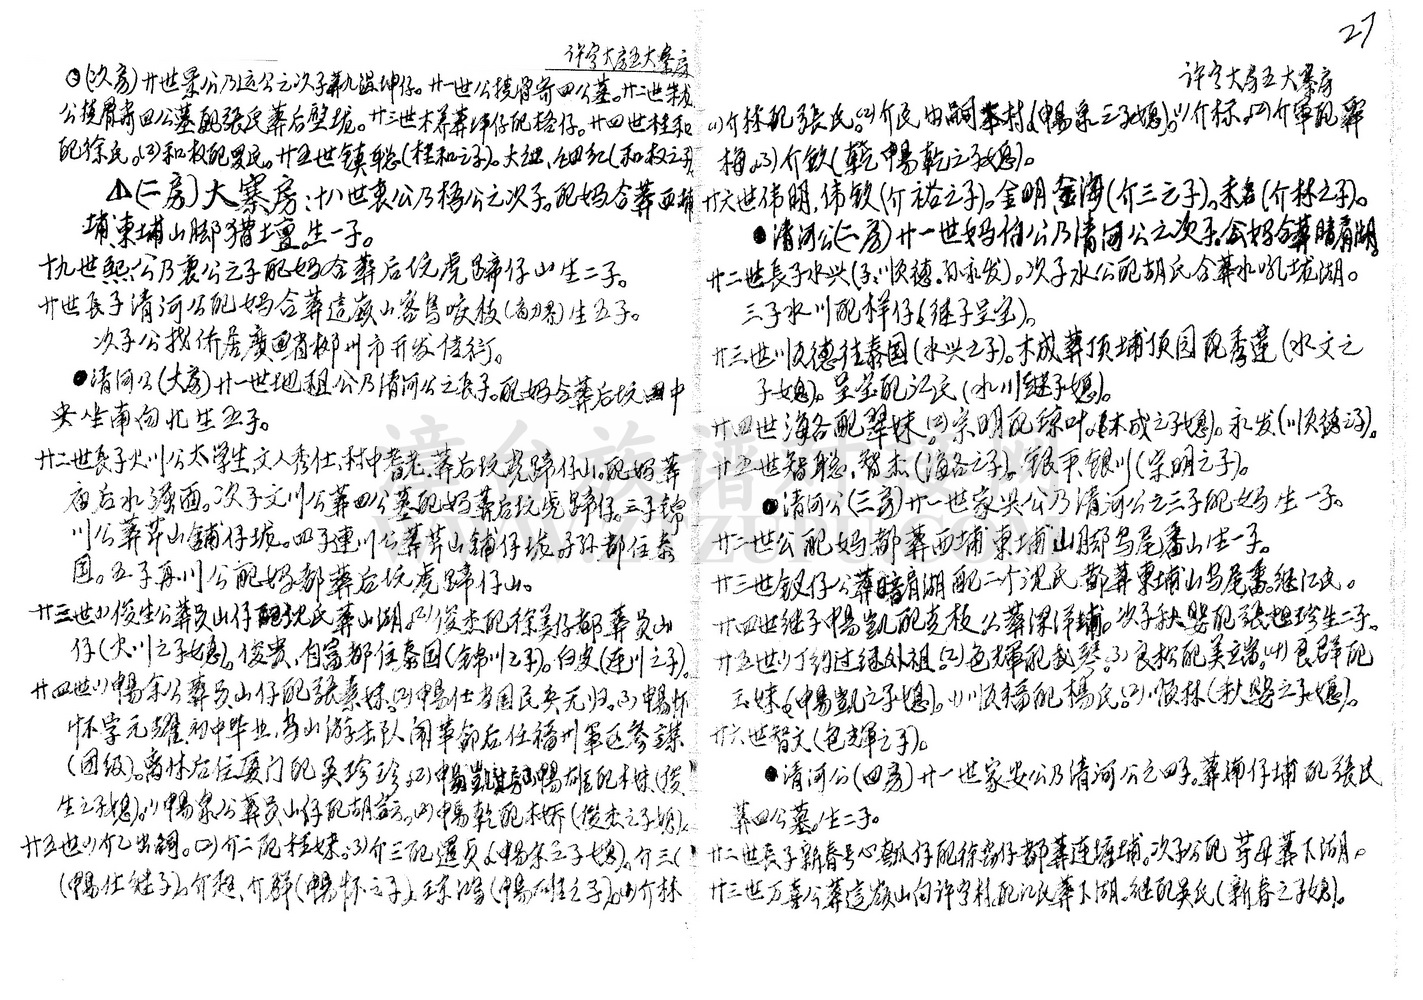 27
许字大房五大寨房
(次房)廿世景公乃远公之次子葬九温坤仔。廿一世公捡骨寄四公墓。廿二世朱
公捡骨寄四公墓配張氏葬后壁垅。廿三世木养葬坤仔配格仔。廿四世桂和
配徐氏。(2)和枚配罗氏。廿五世镇聪(桂和之子)。大
(二房)大寨房:十八世衷公乃梧公之次子。配妈合葬西埔
埔東埔山脚猪壇。生一子。
十九世熙公乃衷公之子配妈合葬后坑虎蹄仔山生二子。
廿世長子清河公配妈合葬這嶺山客鸟咬枝(高刀寮)生五子。
次子公找侨居廣西省柳州市开发佳衍。
清河公(大房)廿一世地租公乃清河公之長子。配妈合葬后坑四中
央坐南向北生五子。
廿二世長子火川公大学生文人秀仕、村中耆老葬后坑虎蹄仔山。配妈葬
庵后水強西。次子文川公葬四公墓配妈葬后坑虎蹄仔。三子錦
川公葬芹山鋪仔垅。四子連川公葬芹山鋪仔垅子孙都住泰
国。五子再川公配妈都葬后坑虎蹄仔山。
廿三世(1)俊生公葬员山仔配沈氏葬山湖。(2)俊杰配徐美仔都葬员山
仔(火川之子媳)。俊贵、自富都住泰国(錦川之子)。白皮(连川之子)。
廿四世(1)暢余公葬员山仔配張葉妹。(2)暢仕当国民兵无归。(3)暢怀
怀字元耀、初中毕业、乌山游击队闹革命后任福州軍区参謀
(团级)。离休后住厦门配吴珍珍。(4)暢凱(5)暢雄配木妹(俊
生之子媳)。(1)暢泉公葬员山仔配胡云。(2)暢乾配木娇(俊杰之子媳)。
廿五世(1)介乙出嗣。(2)介二配桂妹。(3)介三配選贞(暢余之子媳)。介三(
(暢仕继子)。介超、介群(暢怀之子)。(暢雄之子)。(1)介林
许字大房五大寨房
(1)介林配張氏。(2)介民出嗣峯村(暢泉之子媳)。(1)介标。(2)介軍配翠
梅。(3)介欽(暢乾之子媳)。
廿六世伟明,伟钦(介裕之子)。金明,金海(介三之子)。未名(介林之子)。
清河公(二房)廿一世妈伯公乃清河公之次子。公妈合葬晴肩湖。
廿二世長子水兴(子:顺德.孙永发)。次子水公配胡氏合葬水吼垅湖。
三子水川配样仔(继子呈宝)。
廿三世顺德住泰国(水兴之子)。木成葬顶埔顶园配秀莲(水文之
子媳)。呈宝配江氏(水川继子媳)。
廿四世海各配翠妹。(2)宗明配琼叶。(木成之子媳)。永发(顺德之子)。
廿五世智聪,智杰(海各之子)。银平银川(宗明之子)。
清河公(三房)廿一世家兴公乃清河公之三子配妈生一子。
廿二世公配妈都葬西埔東埔山脚鸟尾番山生一子。
廿三世钗仔公葬晴肩湖配二个沈氏都葬東埔山鸟尾番。继江氏。
廿四世继子暢凱配克板公葬深洋埔。次子秋婴配張想珍生二子。
廿五世(1)丁约过继外祖。(2)色輝配武琴。(3)良松配美富。(4)良群配
玉妹(暢凱之子媳)。(1)顺福配楊氏。(2)顺林(秋婴之子媳)。
廿六世智文(色輝之子)。
清河公(四房)廿一世家安公乃清河公之四子。葬浦仔埔配張氏
葬四公墓。生二子。
廿二世長子新春号心匏仔配徐葛仔都葬连塘埔。次子公配芽母葬下湖。
廿三世万喜公葬這嶺山向许字村。配江氏葬下湖。继配吴氏(新春之子媳)。
漳台族谱对接网
WWW.ZTZUPU.COM